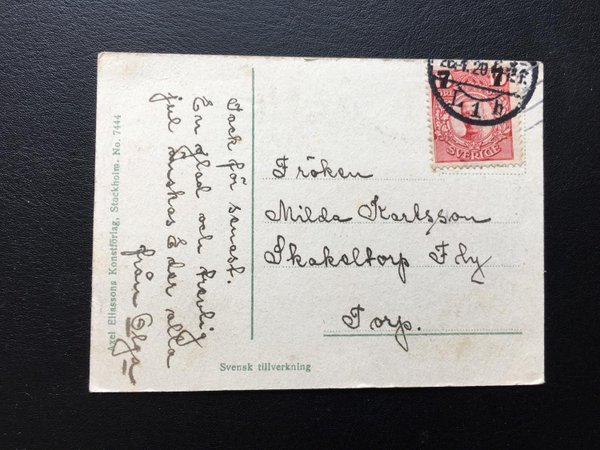 Axel Eliassons Konstförlag, Stockholm. No. 7444
Tack för senast.
En glad och trevlig
jul önskas Eder alla
från Olga
Fröken
Milda Karlsson
Skakeltorp Fly
Torp.
Svensk tillverkning
SVERIGE